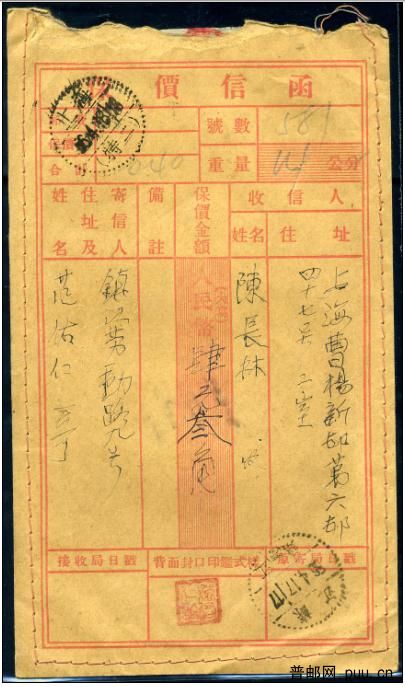 價信函
號數 581
重量 公分
收信人
姓名 住址
保價金額
備註
寄信人
住址及
姓名
上海曹楊新邨第六邨
四十七号 二室
陳長林
人民幣
肆元叁角
鎮江勞動路九号
范佑仁
接收局日戳
背面封口印鑑式樣
原寄局日戳
普邮网 puu.cn